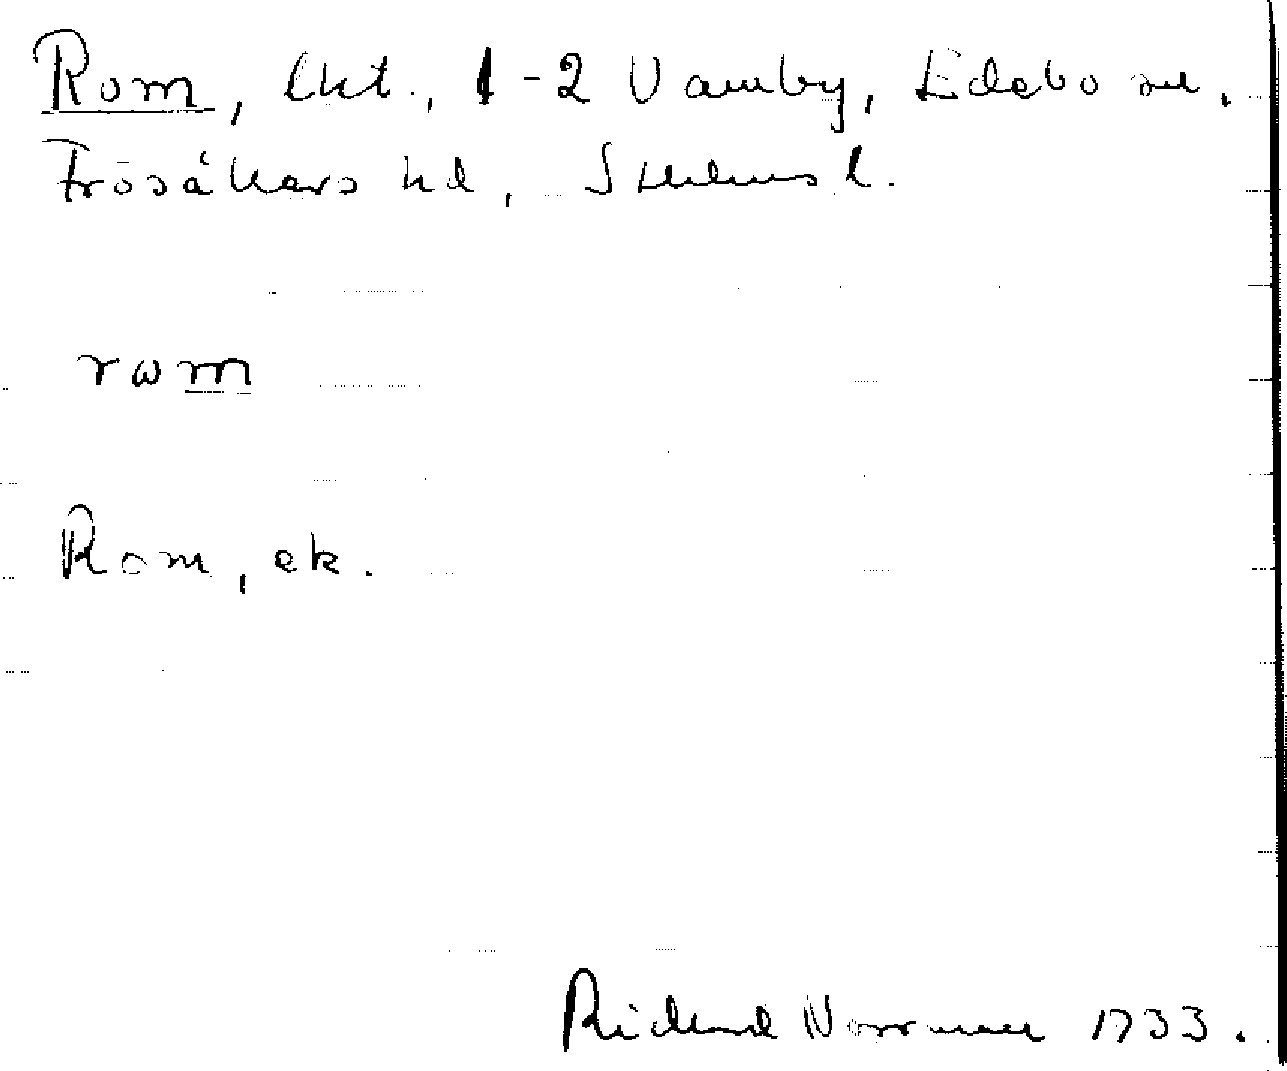 Rom, lht., 1-2 Vamby, Edebo sn.
Frösåkers hd, Sthlms l.
rωm
Rom, ek.
Richard Norrman 1933.